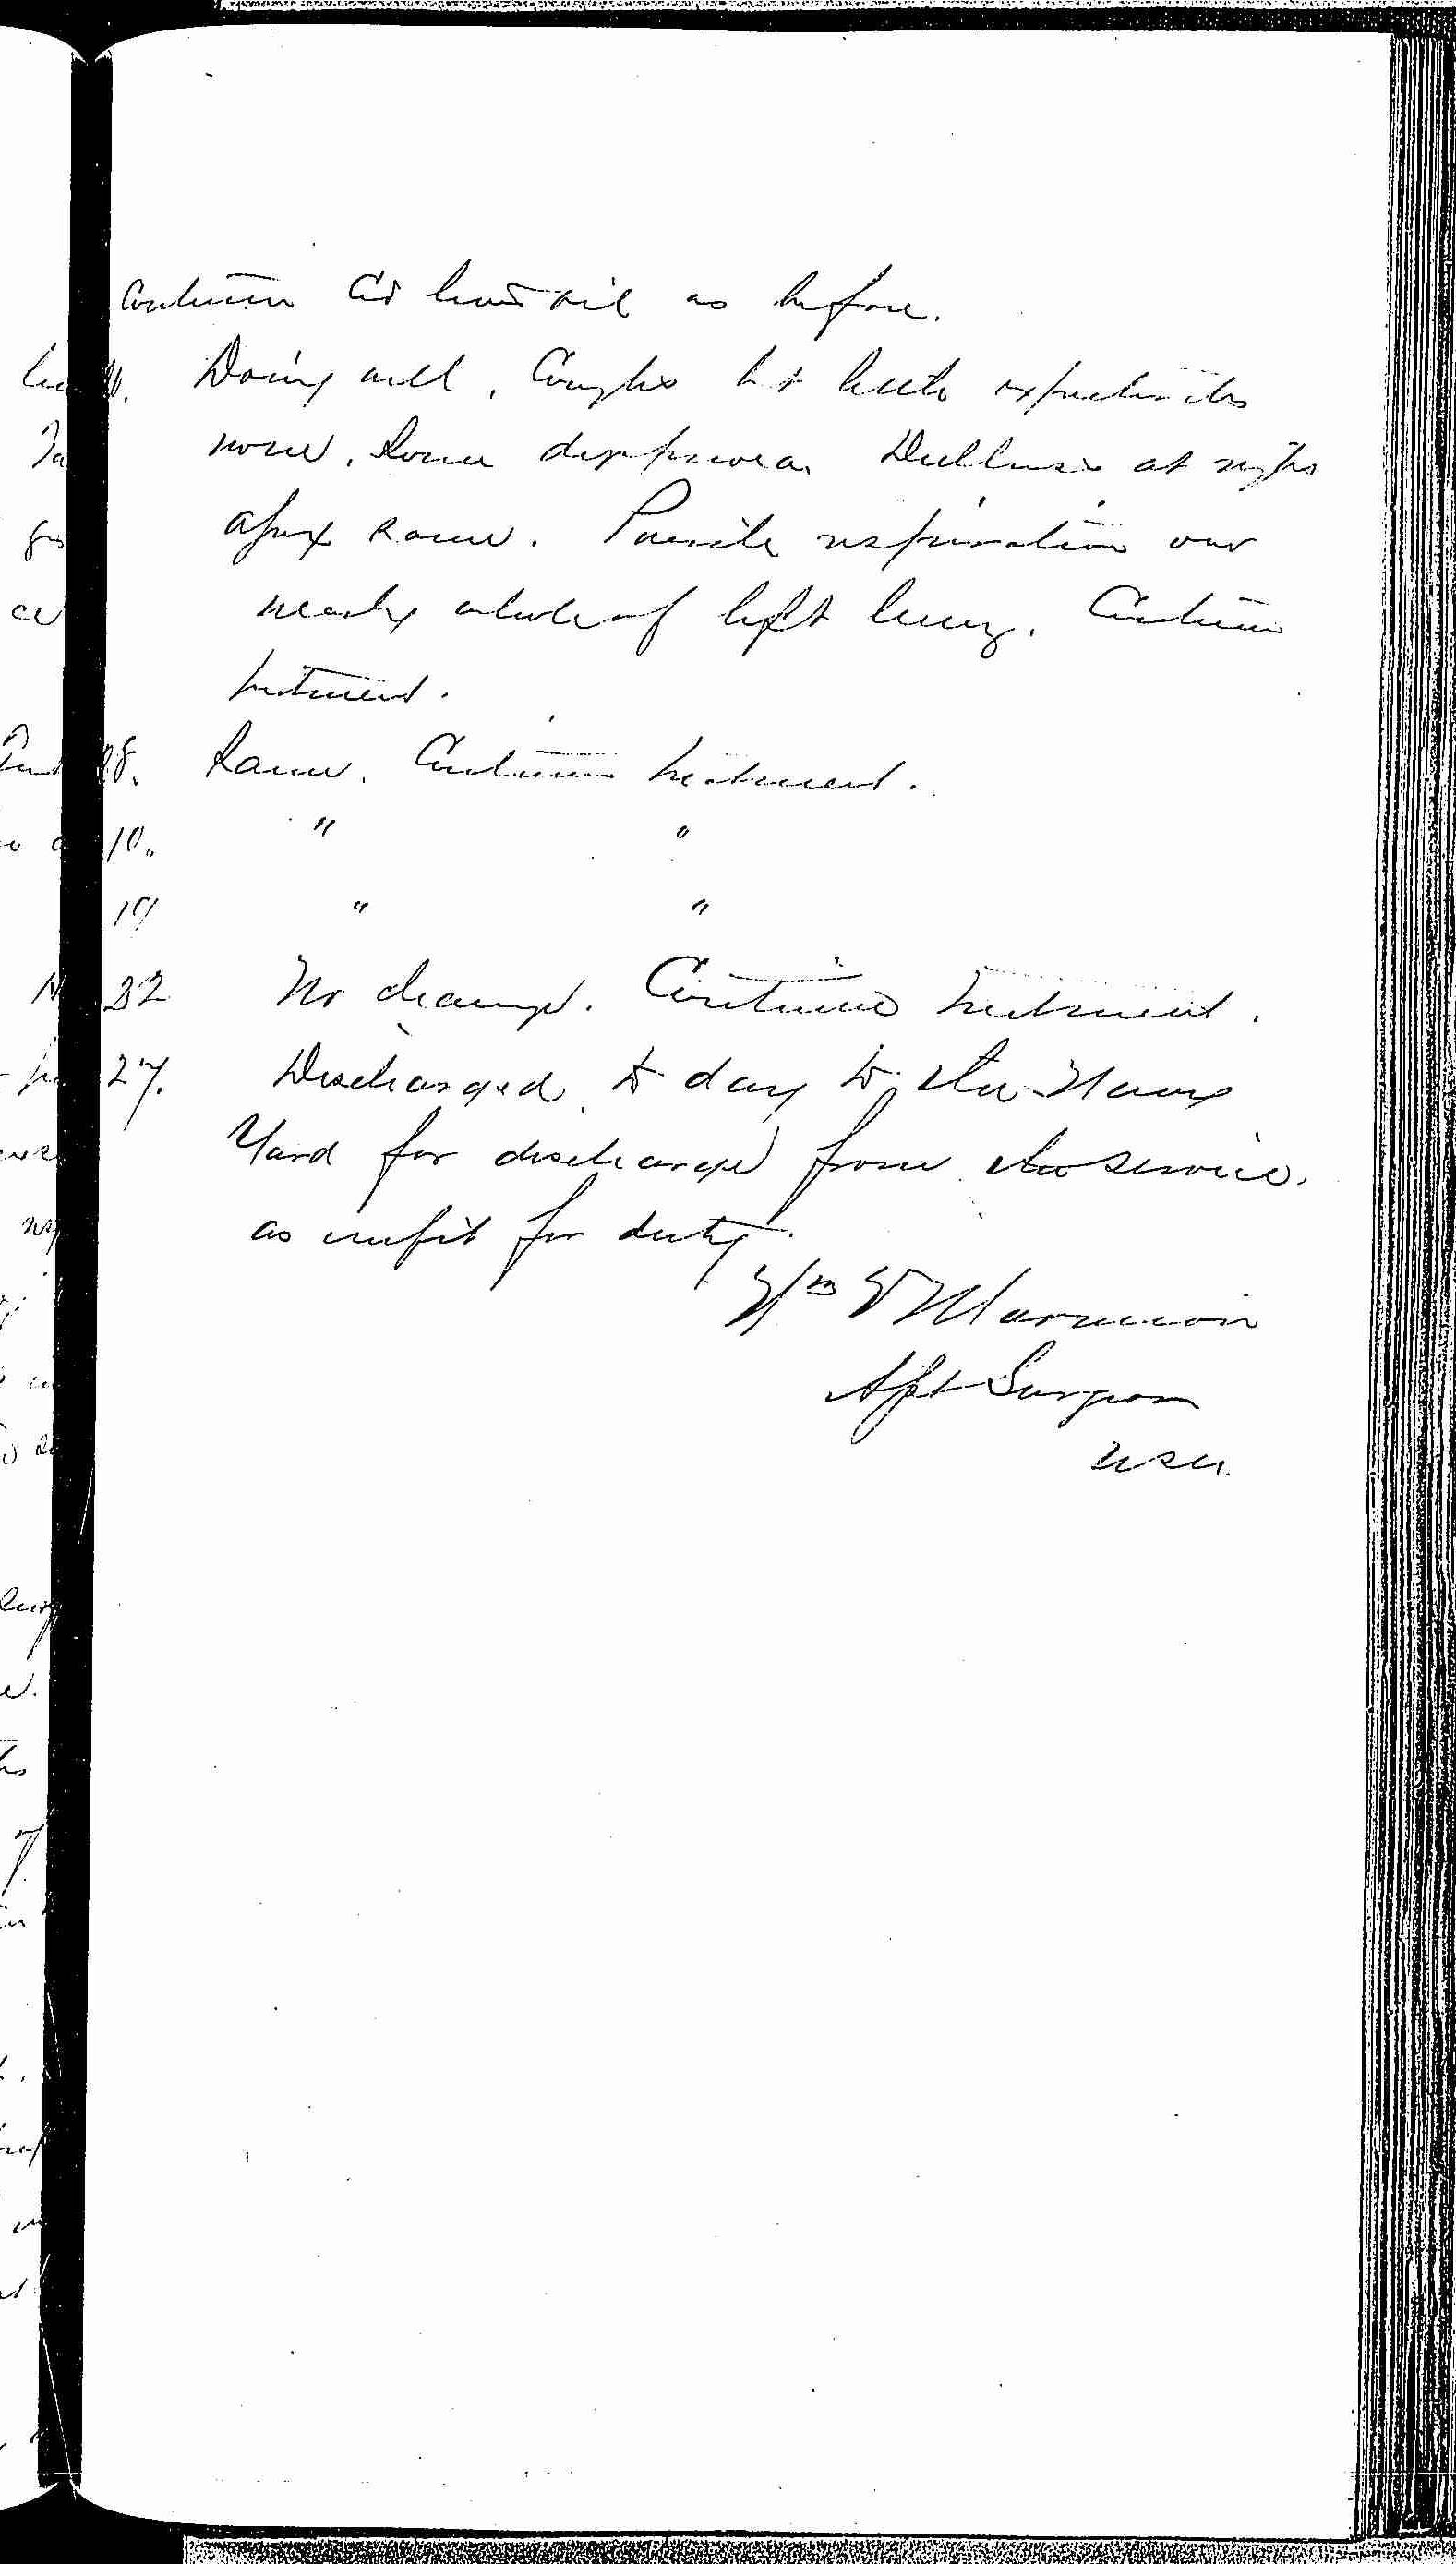 Continue Cod liver oil as before.
Doing well, Coughs but little expectorates
none. Some dyspnoea. Dullness at right
apex same. Puerile respiration over
nearly whole of left lung. Continue
treatment.
28. Same. Continue treatment.
10. " "
19 " "
22 No change. Continue treatment.
27. Discharged to day to the Navy
Yard for discharge from the service.
as unfit for duty.
Wm Marmion
Asst Surgeon
USN.